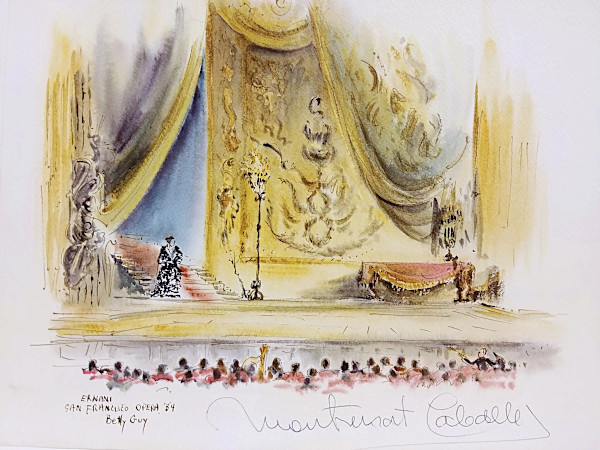 ERNANI
SAN FRANCISCO OPERA '84
Betty Guy
Montserrat Caballé